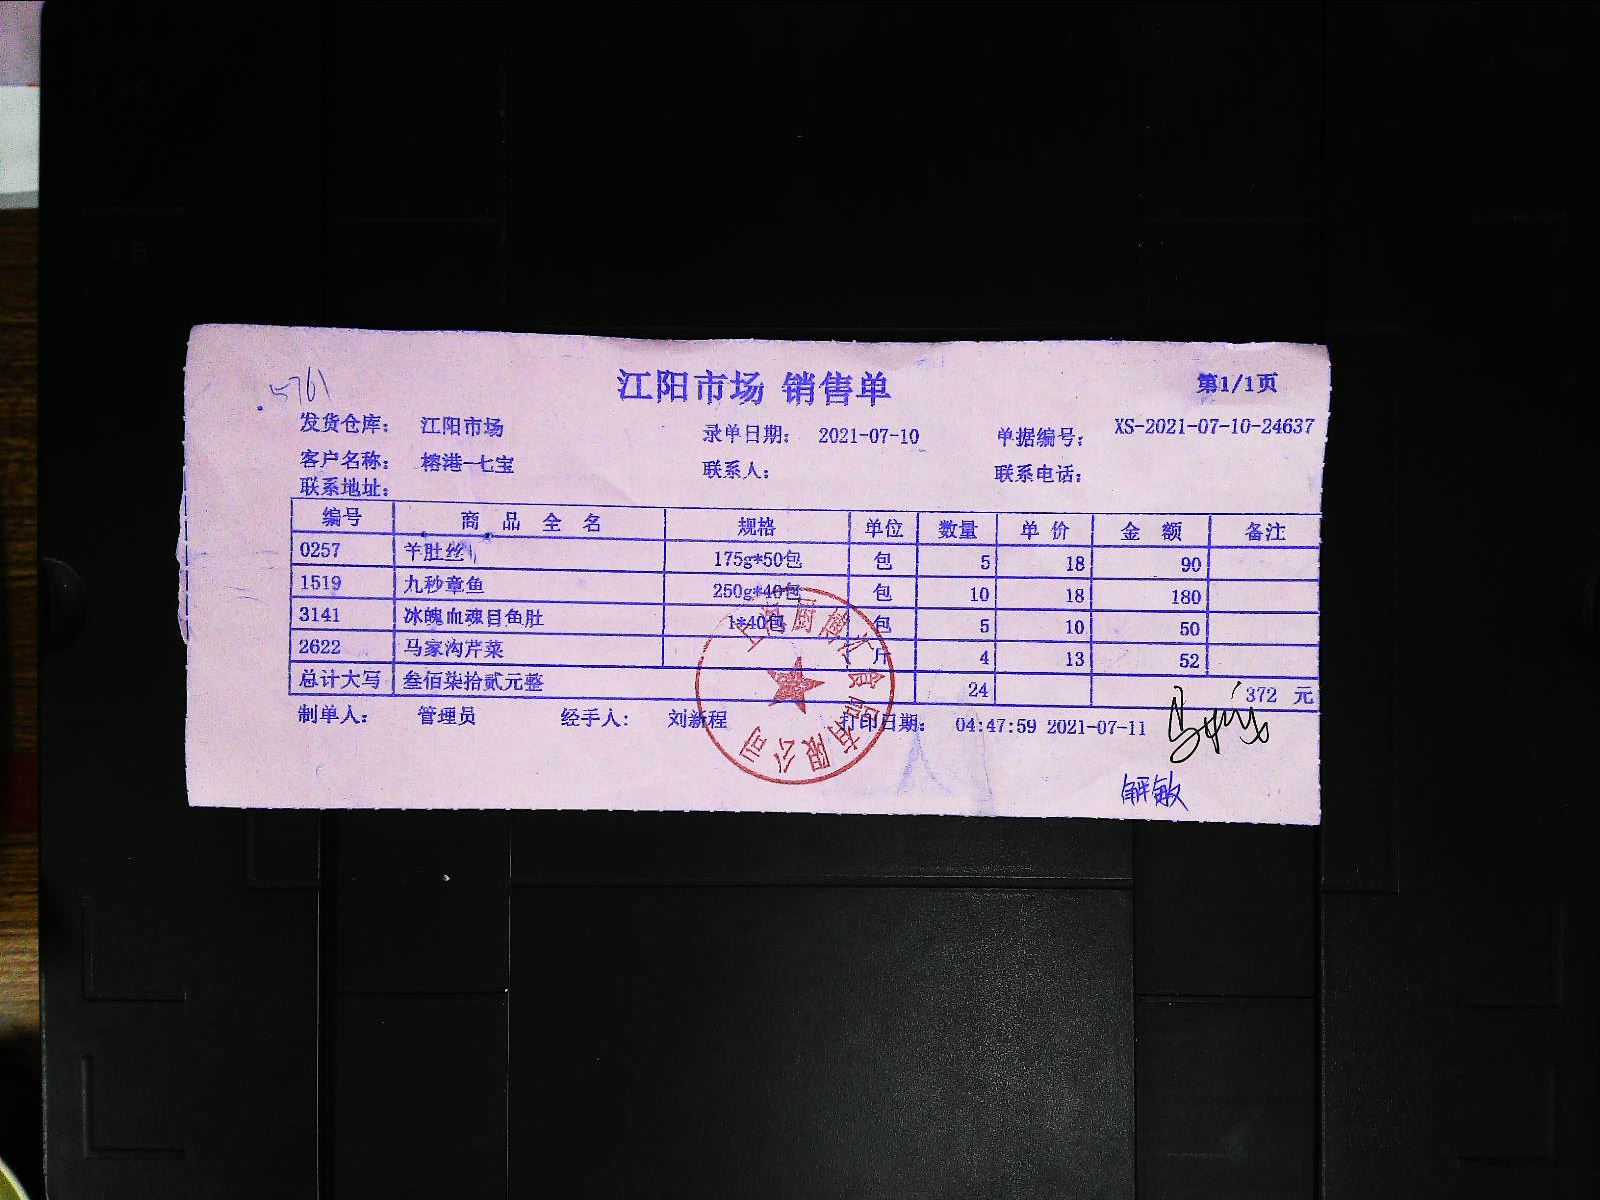 5761
江阳市场 销售单
第1/1页
发货仓库： 江阳市场 录单日期： 2021-07-10 单据编号： XS-2021-07-10-24637
客户名称： 榕港-七宝 联系人： 联系电话：
联系地址：
编号 商品全名 规格 单位 数量 单价 金额 备注
0257 羊肚丝 175g*50包 包 5 18 90
1519 九秒章鱼 250g*40包 包 10 18 180
3141 冰魄血魂目鱼肚 1*40包 包 5 10 50
2622 马家沟芹菜 斤 4 13 52
总计大写 叁佰柒拾贰元整 24 372 元
制单人： 管理员 经手人： 刘新程 打印日期： 04:47:59 2021-07-11
食品有限公司
解敏